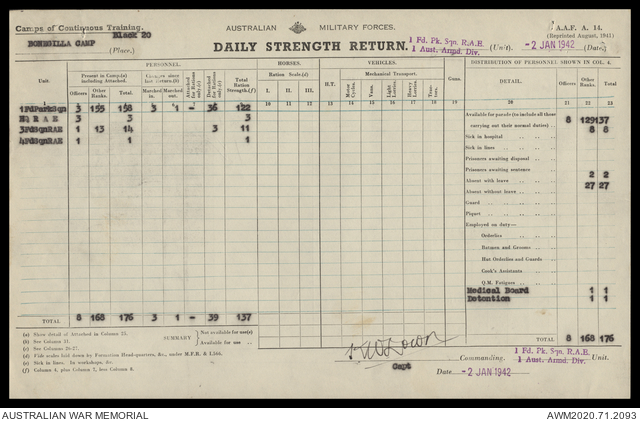 Camps of Continuous Training.
Block 20
BONEGILLA CAMP
(Place.)
AUSTRALIAN MILITARY FORCES.
DAILY STRENGTH RETURN.
1 Fd. Pk. Sqn. R.A.E.
1 Aust. Armd. Div.
(Unit).
-2 JAN 1942
(Date)
A.A.F. A. 14.
(Reprinted August, 1941)
Unit. PERSONNEL. HORSES. VEHICLES. Guns. DISTRIBUTION OF PERSONNEL SHOWN IN COL. 4.
Present in Camp(a) including Attached. Changes since last Return.(b) Attached for Rations only(c) Detached for Rations only(c) Total Ration Strength.(f) Ration Scale.(d) Mechanical Transport. DETAIL. Officers Other Ranks. Total.
Officers Other Ranks. Total. Marched in. Marched out. I. II. III. H.T. Motor Cycles. Vans. Light Lorries. Heavy Lorries. Trac-tors.
1 2 3 4 5 6 7 8 9 10 11 12 13 14 15 16 17 18 19 20 21 22 23
1FdParkSqn 3 155 158 3 1 - 36 122
R A E 3 3 3
3FdSqnRAE 1 13 14 3 11
4FdSqnRAE 1 1 1
Available for parade (to include all those
carrying out their normal duties) 8 129 137
Sick in hospital 8 8
Sick in lines
Prisoners awaiting disposal
Prisoners awaiting sentence 2 2
Absent with leave 27 27
Absent without leave
Guard
Piquet
Employed on duty—
Orderlies
Batmen and Grooms
Hut Orderlies and Guards
Cook's Assistants
Q.M. Fatigues
Medical Board 1 1
Detention 1 1
TOTAL 8 168 176 3 1 - 39 137
TOTAL 8 168 176
(a) Show detail of Attached in Column 23.
(b) See Column 31.
(c) See Columns 26-27.
(d) Vide scales laid down by Formation Head-quarters, &c., under M.F.R. & I.566.
(e) Sick in lines. In workshops, &c.
(f) Column 4, plus Column 7, less Column 8.
SUMMARY
Not available for use(e)
Available for use
Capt
Commanding.
1 Fd. Pk. Sqn. R.A.E.
1 Aust. Armd. Div.
Unit.
Date -2 JAN 1942
AUSTRALIAN WAR MEMORIAL
AWM2020.71.2093